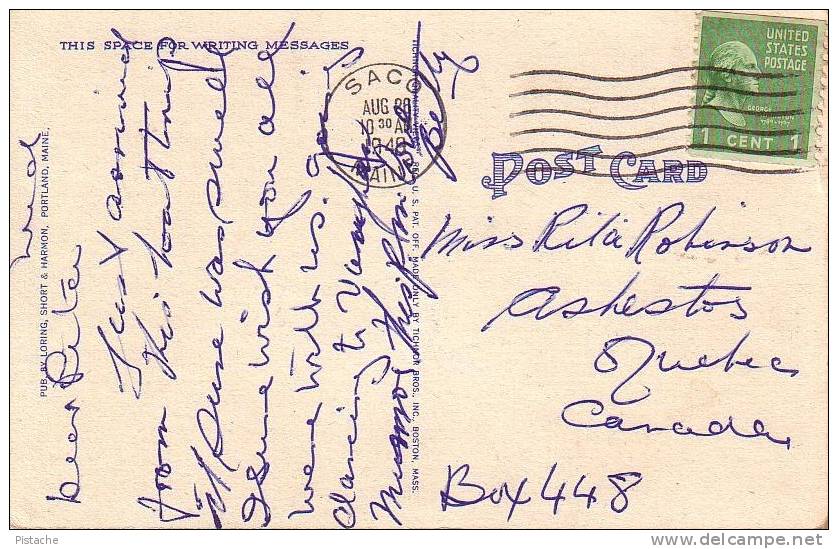 THIS SPACE FOR WRITING MESSAGES
Wed
Dear Rita
Just arrived
from this boat trip
It sure was swell
I sure wish you all
were with us. Going
dancing to Vaughn
Monroe this
PUB. BY LORING, SHORT & HARMON, PORTLAND, MAINE.
REG. U. S. PAT. OFF. MADE ONLY BY TICHNOR BROS., INC., BOSTON, MASS.
SACO
AUG
10 30 AM
MAINE
UNITED
STATES
POSTAGE
GEORGE
1 CENT 1
POST CARD
Miss Rita Robinson
Asbestos
Quebec
Canada,
Box 448
Pistache
delcampe.net